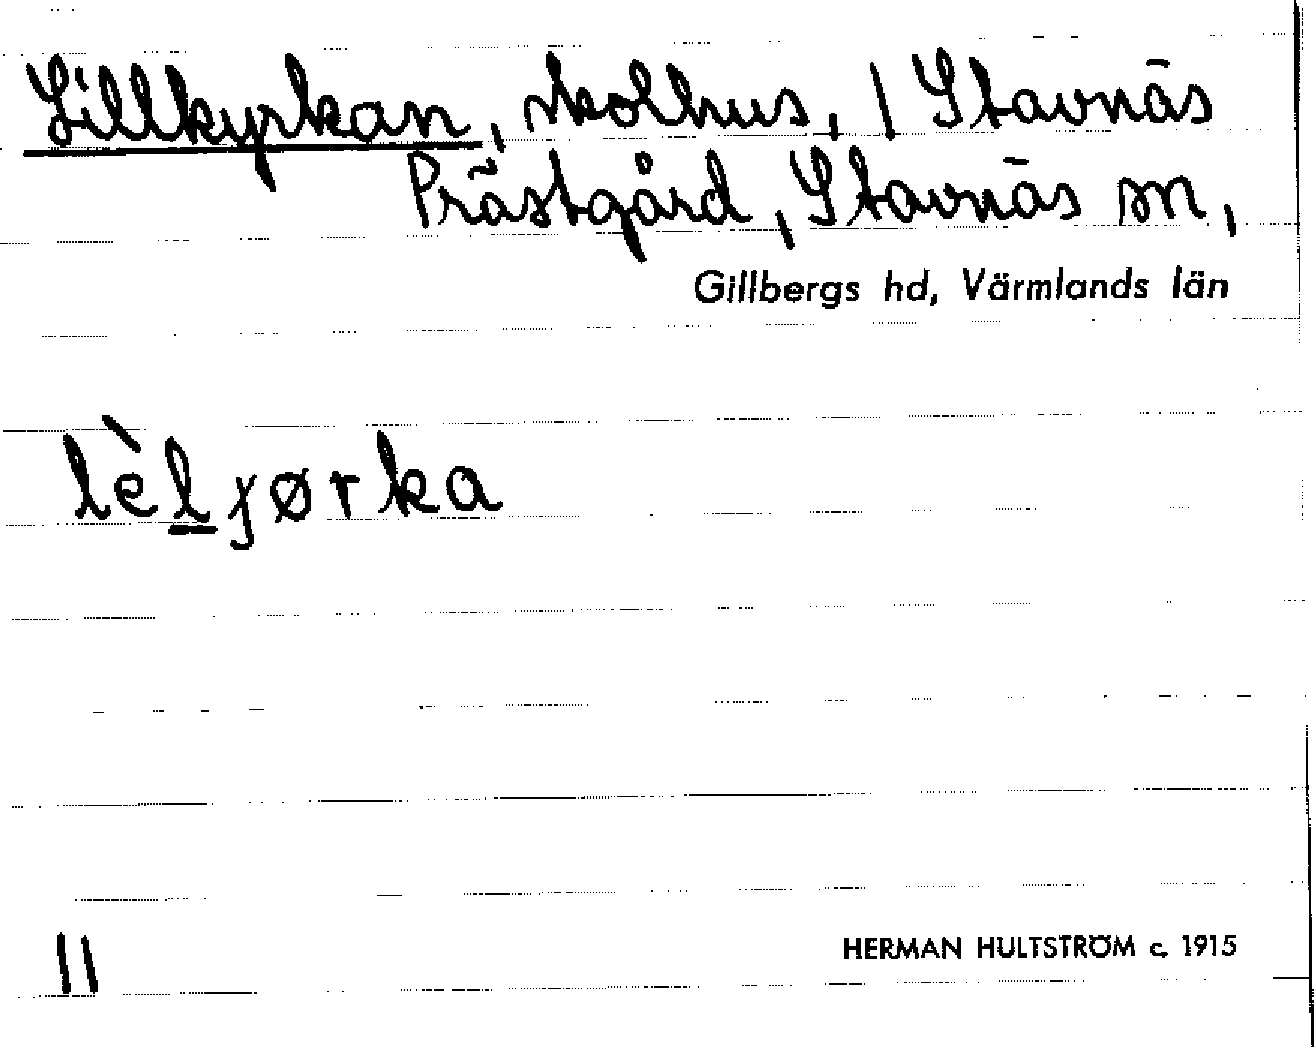 Lillkyrkan, skolhus, / Stavnäs
Prästgård, Stavnäs sn,
Gillbergs hd, Värmlands län
lèljørka
11
HERMAN HULTSTRÖM c. 1915